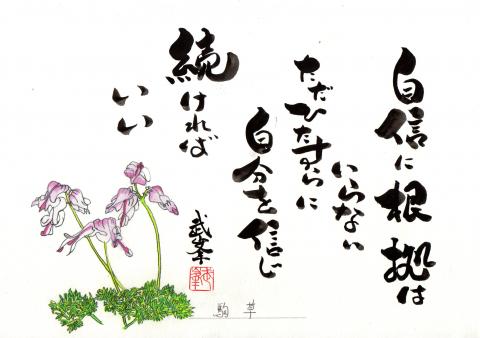 自信に根拠は
いらない
ただひたすらに
自分を信じ
続ければ
いい
駒草